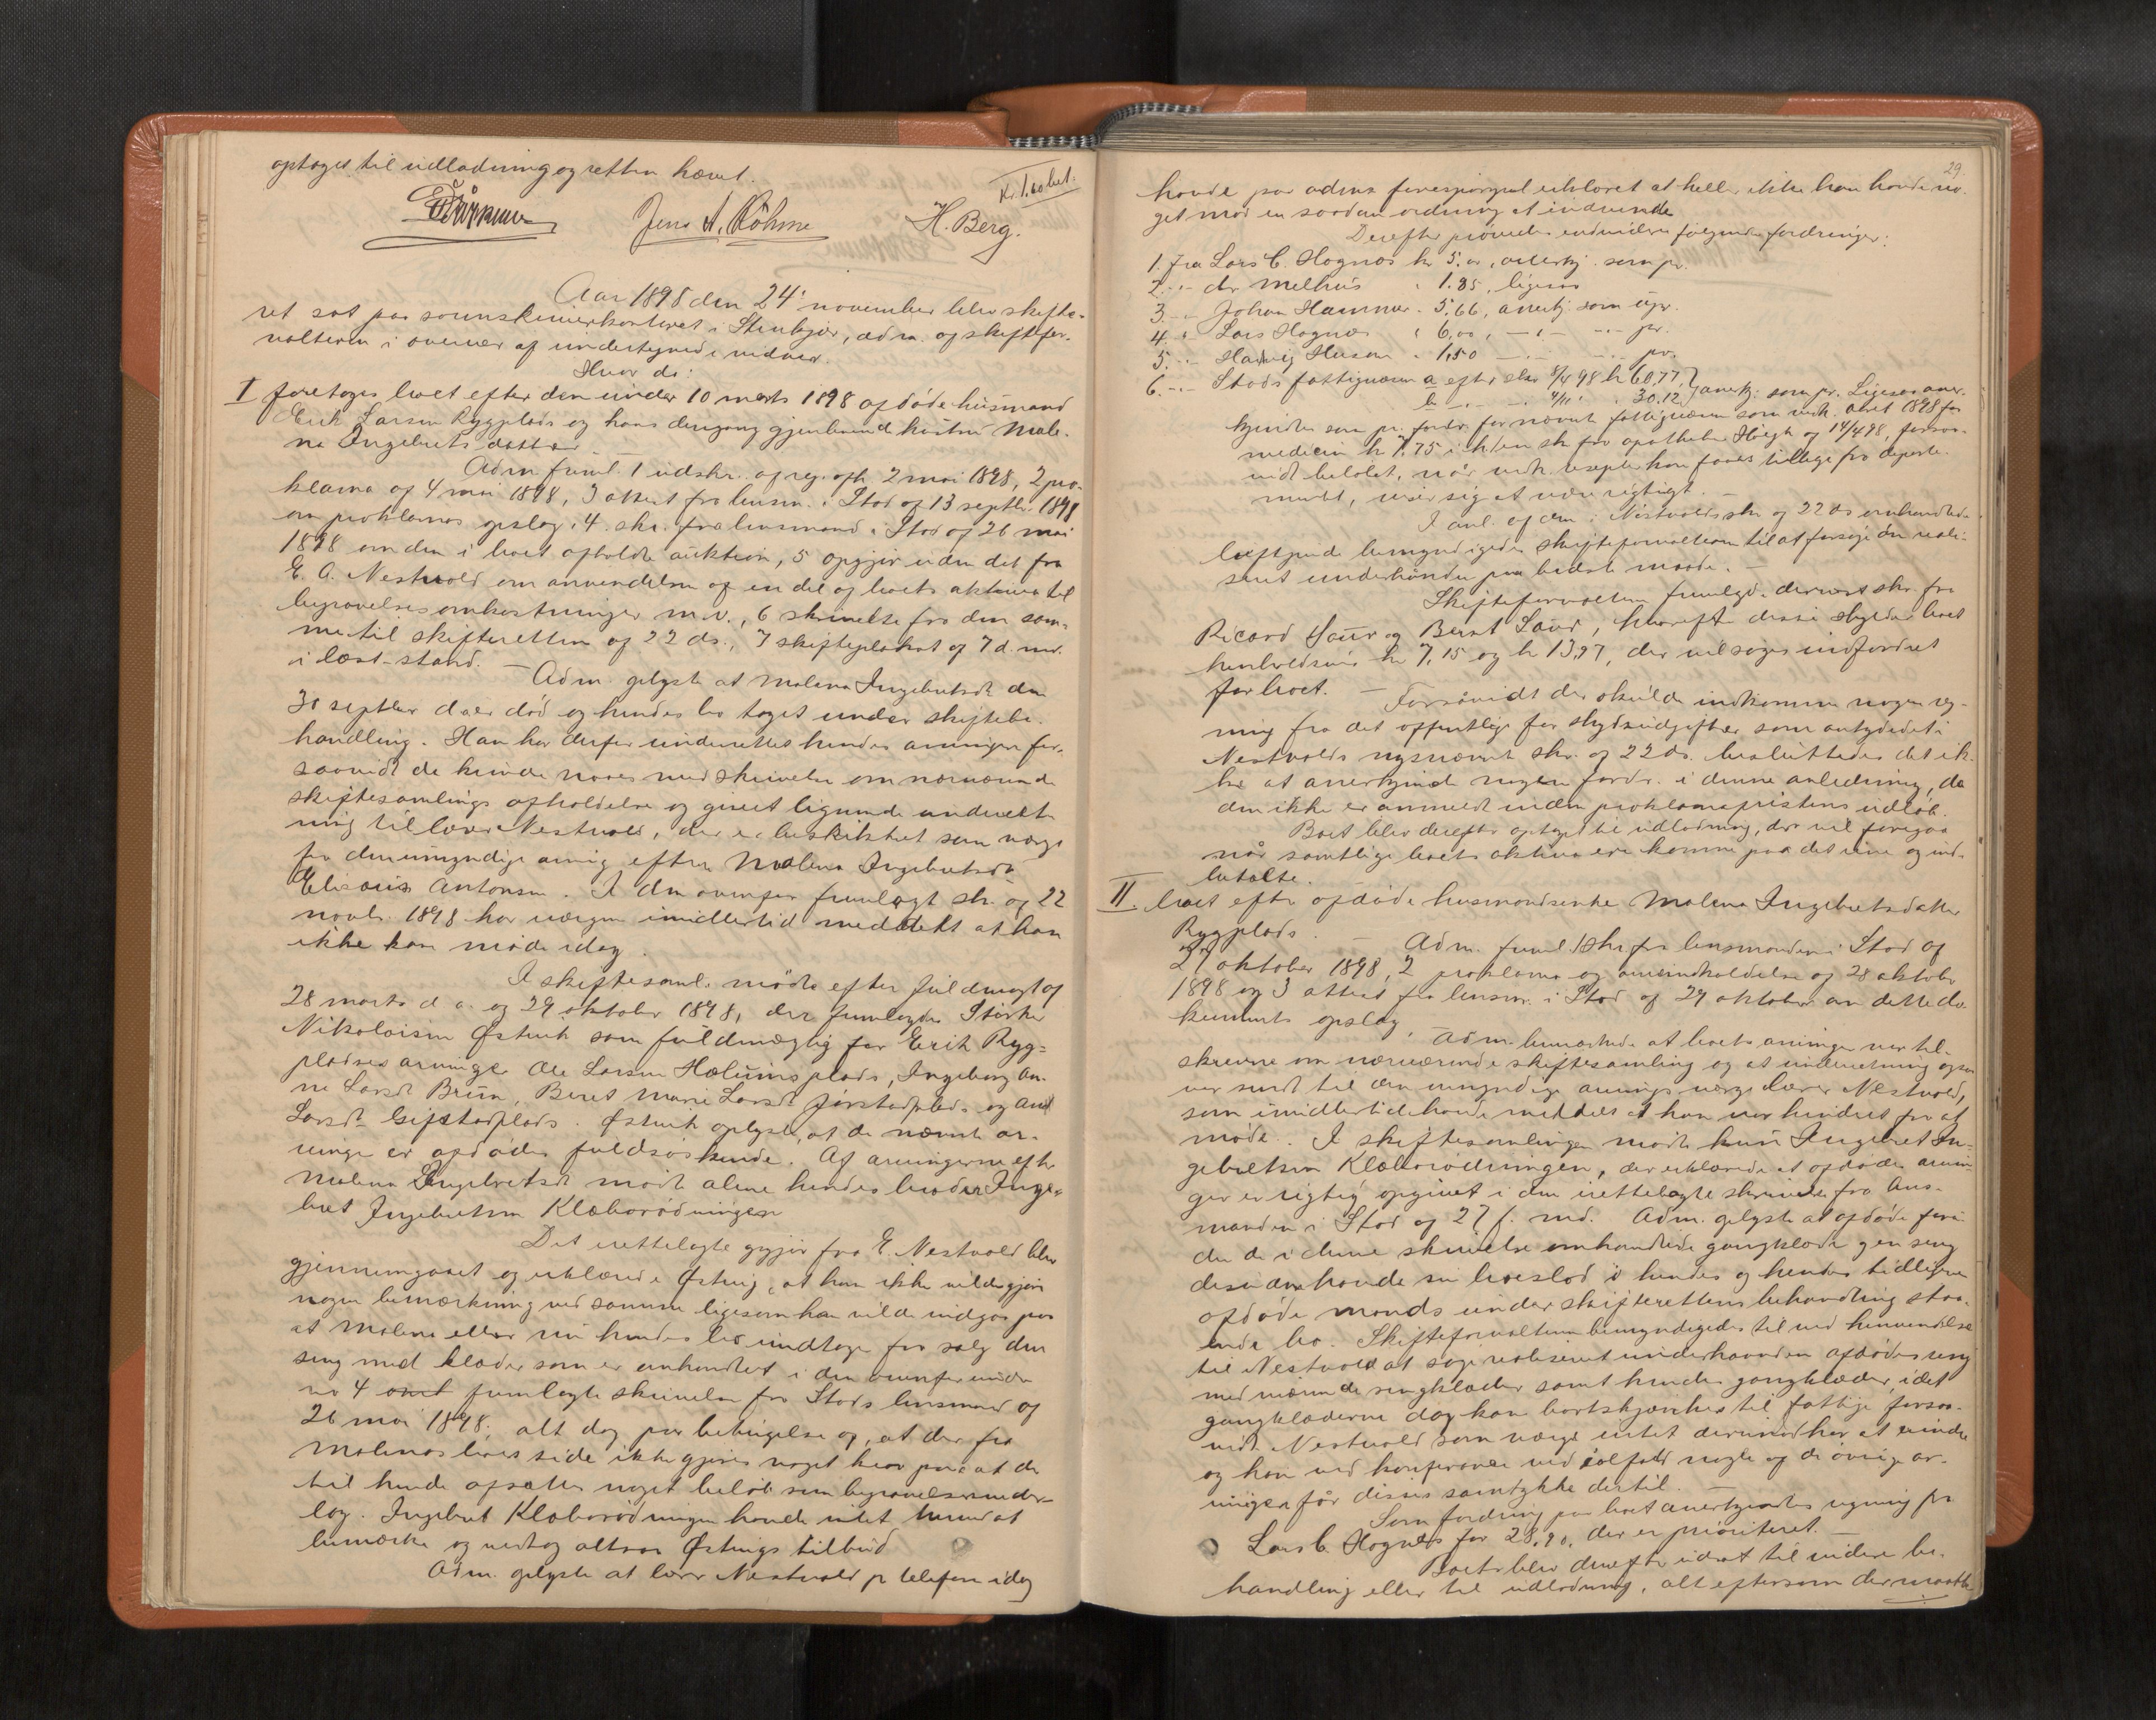 optages til udlodning og retten hævet.
Kr. 1.60 bet.
Jens A. Röhme H. Berg.
Aar 1898 den 24' november blev skifte-
ret sat paa sorenskriverkontoret i Stenkjær, adm. af skiftefor-
valteren i overvær af undertegnede vidner.
Hvor da:
I foretoges boet efter den under 10 marts 1898 afdøde husmand
Erik Larsen Rygplads og hans dengang gjenlevende hustru Male-
na Ingebretsdatter.
Adm freml. 1 udskr. af reg. afh. 2 mai 1898, 2 pro-
klama af 4 mai 1898, 3 attest fra lensm. i Stod af 13 septbr. 1898
om proklamas opslag, 4 skr. fra lensmand i Stod af 26 mai
1898 om den i boet afholdte auktion, 5 opgjør uden dat fra
E. A. Nestvold om anvendelsen af en del af boets aktiva til
begravelsesomkostninger m.v., 6 skrivelse fra den sam-
me til skifteretten af 22 ds., 7 skifteplakat af 7 d. md.
i læst stand. — Adm. oplyste at Malena Ingebretsdt den
30 septbr d. a er død og hendes bo taget under skiftebe-
handling. Han har derfor underrettet hendes arvinger for-
saavidt de kunde naaes med skrivelse om nærværende
skiftesamlings afholdelse og givet lignende underret-
ning til lærer Nestvold, der er beskikket som værge
for den umyndige arving efter Malena Ingebretsdt
Elisæus Antonsen. I den ovenfor fremlagt skr. af 22
novbr. 1898 har værgen imidlertid meddelt at han
ikke kan møde idag.
I skiftesaml. mødte efter fuldmagt af
28 marts d. a. og 29 oktober 1898, der fremlagdes Størker
Nikolaisen Østvik som fuldmægtig for Erik Ryg-
pladses arvinger Ole Larsen Hælumsplads, Ingeborg An-
na Larsdt Bruem, Beret Marie Larsdt Jørstadplads og Ane
Larsdt Gifstadplads. Østvik oplyste, at de nævnte ar-
vinge er afdødes fuldsøskende. Af arvingerne efter
Malena Ingebretsdt mødte alene hendes broder Inge-
bret Ingebretsen Klæborødningen
Det rettelagte opgjør fra E. Nestvold blev
gjennemgaaet og erklærede Østvig, at han ikke vilde gjøre
nogen bemærkning ved samme ligesom han vilde indgaa paa
at Malena eller nu hendes bo undtages fra salg den
seng med klæder som er omhandlet i den ovenfor under
no 4 fremlagte skrivelse fra Stods lensmand af
26 mai 1898, alt dog paa betingelse af, at der fra
Malenas boes side ikke gjøres noget krav paa at der
til hende afsættes noget beløb som begravelsesveder-
lag. Ingebret Klæborødningen havde intet herved at
bemærke og vedtog altsaa Østvigs tilbud
Adm. oplyste at lærer Nestvold pr telefon idag
29.
havde paa adms forespørgsel erklæret at heller ikke han havde no-
get mod en saadan ordning at indvende
Derefter prøvedes endvidere følgende fordringer:
1. fra Lars C. Hognæs kr 5.00, anerkj. som pr.
2. -"- dr Melhus " 1.85, ligesaa
3. -"- Johan Hammer " 5.66, anerkj. som upr.
4. " Lars Hognæs " 6,00, -"- -"- pr.
5. -"- Hedvig Husem " 1,50 -"- -"- pr.
6. -"- Stods fattigvæsen a efter skr 8/4 98 kr 60.77,
b -"- -"- 7/11 " 30.12 anerkj. som pr. Ligesaa aner-
kjendtes som pr. fordr. for nævnte fattigvæsen som vedk. aaret 1898 for
medicin kr 7.75 i hen skr fra apotheker Høegh af 14/4 98, forsaa-
vidt beløbet, naar vedk. resepter kan faaes tilbage fra departe-
mentet, viser sig at være rigtigt. —
I anl. af den i Nestvolds skr af 22 ds omhandlede
bemyndigedes skifteforvalteren til at forsøge den reali-
seret underhaanden paa bedste maade. —
Skifteforvalteren fremlagde dernæst skr. fra
Ricard Saur og Bernt Saur, hvorefter disse skylder boet
henholdsvis kr 7,15 og kr 13,97, der vil søges indfordret
for boet. — Forsaavidt der skulde indkomme nogen reg-
ning fra det offentlige for skydsudgifter som antydet i
Nestvolds nysnævnt skr. af 22 ds. besluttedes det ik-
ke at anerkjende nogen fordr. i denne anledning, da
den ikke er anmeldt inden proklamafristens udløb.
Boet blev derefter optaget til udlodning, der vil foregaa
naar samtlige boets aktiva ere komne paa det rene og ind-
betalte.
II. boet efter afdøde husmandsenke Malena Ingebretsdatter
Rygplads. — Adm. freml. 1 skr fra lensmanden i Stod af
27 oktober 1898, 2 proklama og arveindkaldelse af 28 oktober
1898 og 3 attest fra lensm. i Stod af 29 oktober om dette do-
kuments opslag. — Adm. bemærkede at boets arvinger var til-
skrevne om nærværende skiftesamling og at underretning ogsaa
var sendt til den umyndige arvings værge lærer Nestvold,
som imidlertid havde meddelt at han var hindret fra at
møde. I skiftesamlingen mødte kun Ingebret In-
gebretsen Klæborødningen, der erklærede at afdødes arvin-
ger er rigtig opgivet i den irettelagte skrivelse fra lens-
manden i Stod af 27 f. md. Adm. oplyste at afdøde foru-
den de i denne skrivelse omhandlede gangklæder og en seng
desuden havde sin boeslod i hendes og hendes tidligere
afdøde mands under skifterettens behandling staa-
ende bo. Skifteforvalteren bemyndigedes til ved henvendelse
til Nestvold at søge realiseret underhaanden afdødes seng
med værende sengklæder samt hendes gangklæder, idet
gangklæderne dog kan bortskjænkes til fattige forsaa-
vidt Nestvold som værge intet derimod har at erindre
og han ved konferance ved ialfald nogle af de øvrige ar-
vinger får disses samtykke dertil. —
Som fordring paa boet anerkjendtes regning fra
Lars C. Hognæs for 28.90, der er prioriteret. —
Boet blev derefter udsat til videre be-
handling eller til udlodning, alt eftersom der maatte